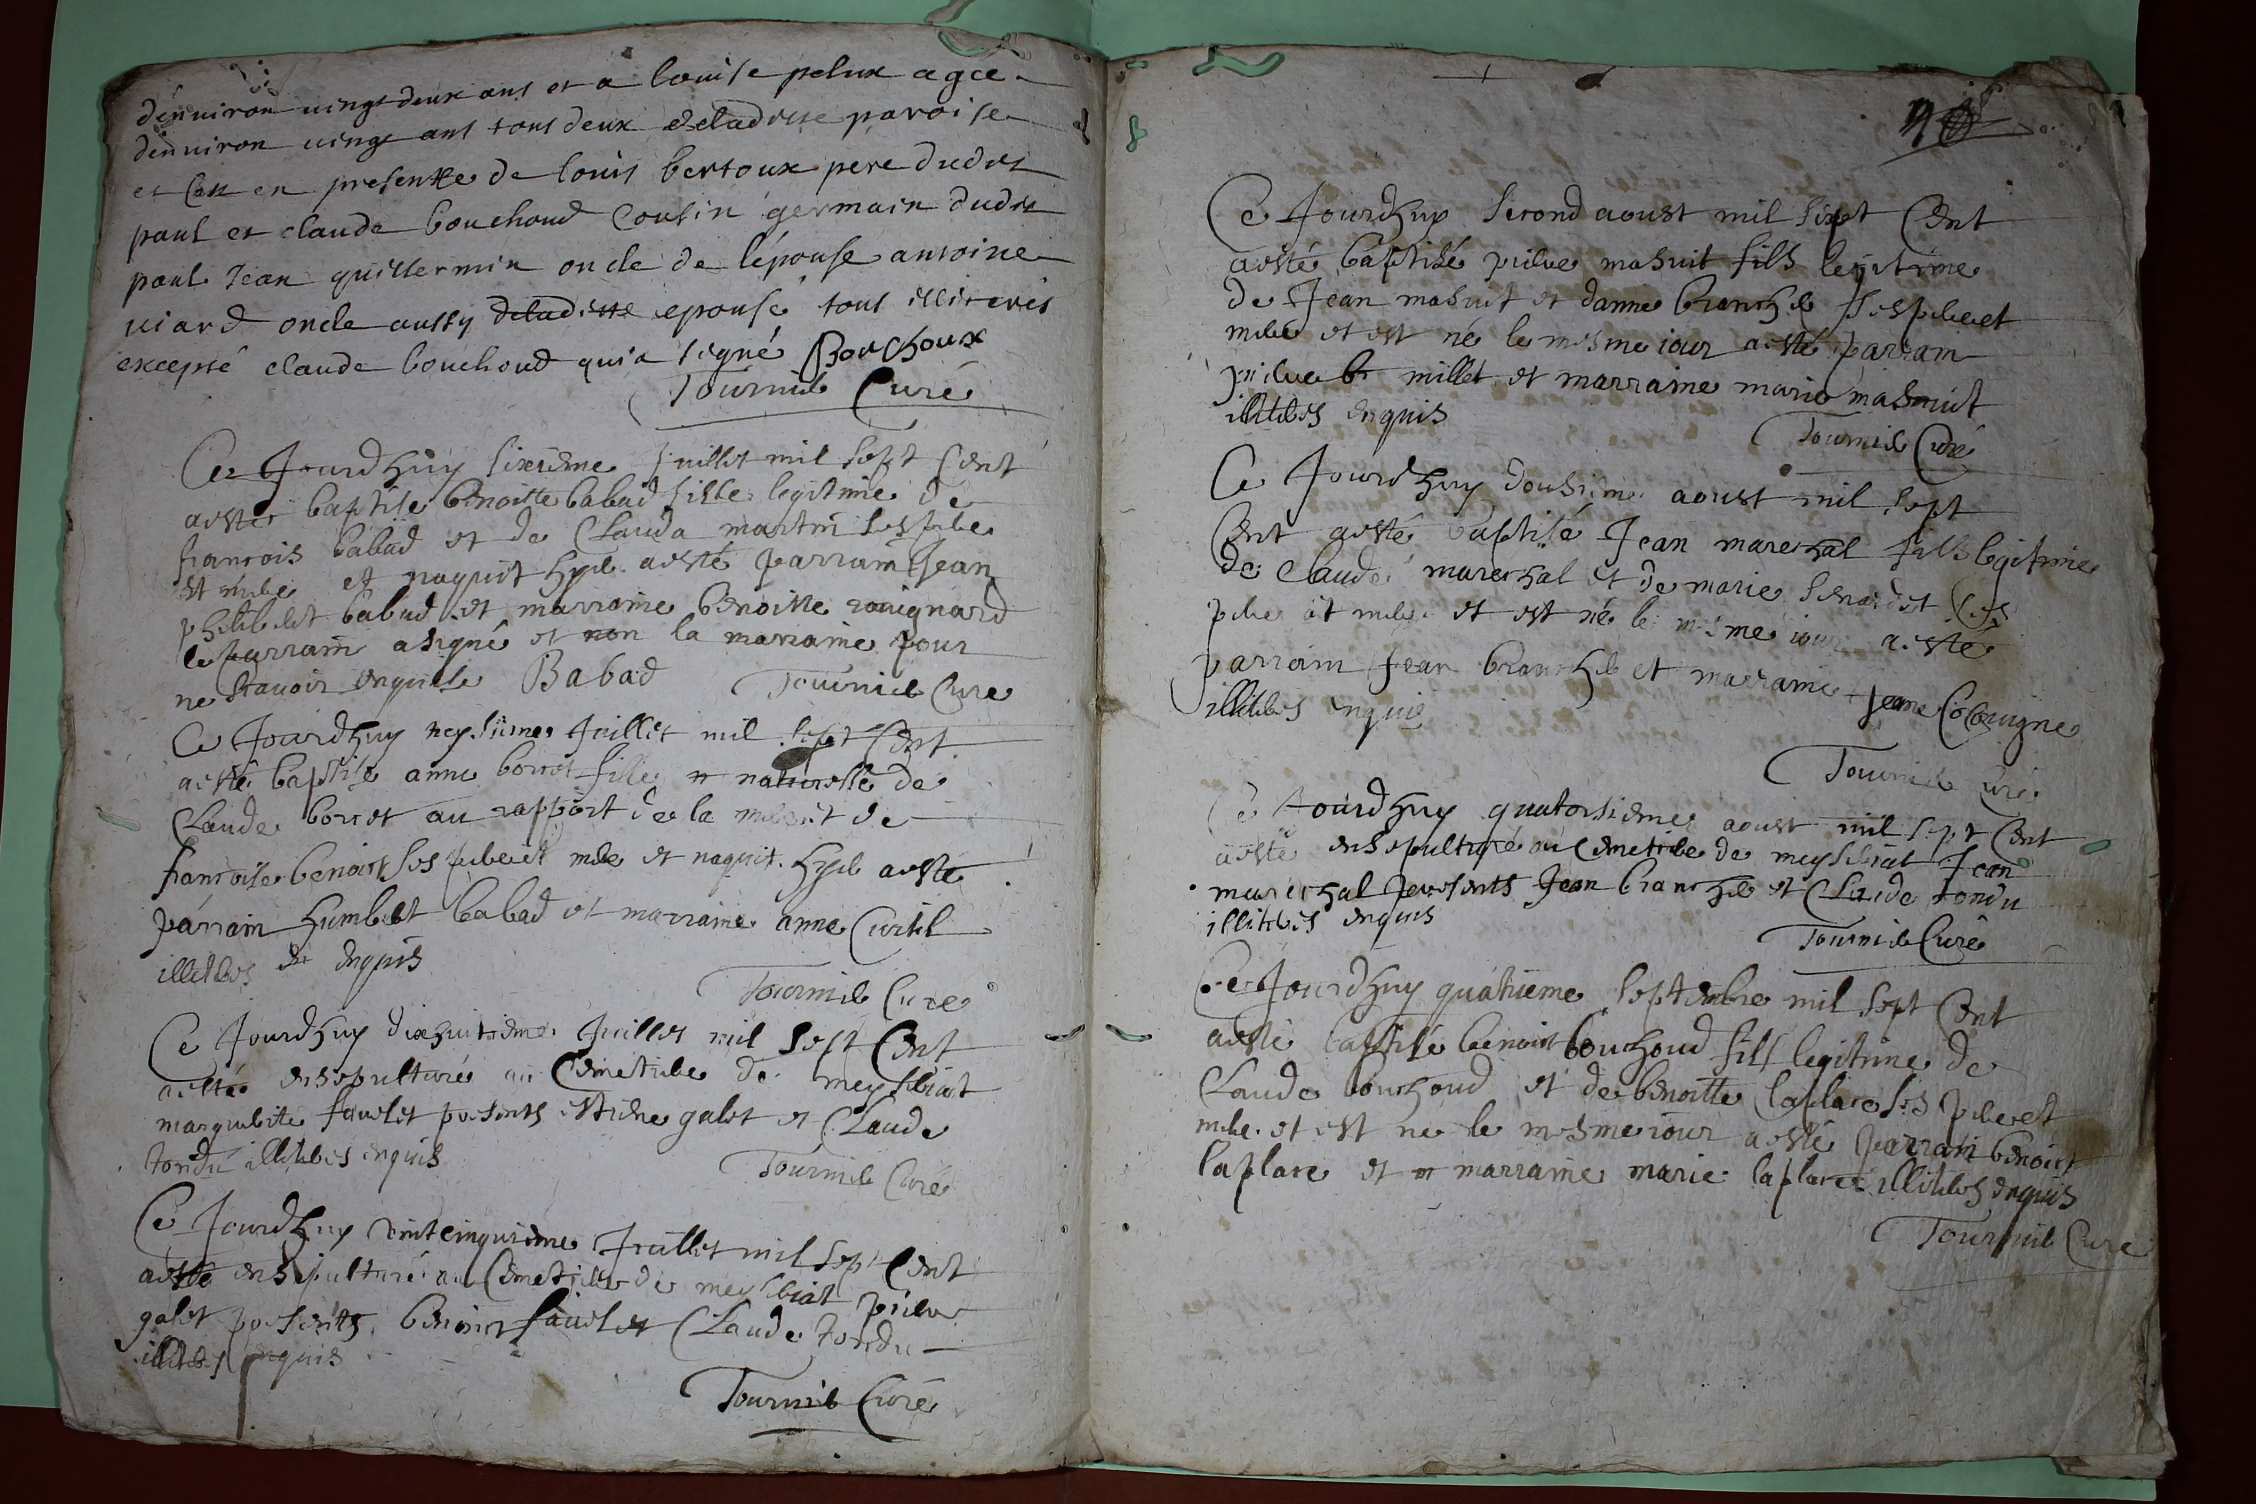 denuiron uingt deux ans et a louise pelux agée
denuiron uingt ans tous deux deladitte paroise
et ce en presente de louis bertoux pere dudit
paul et claude bouchoud cousin germain dudit
paul Jean guillermin oncle de lépouse antoine
uiard oncle aussy deladitte epouse tous illiteres
excepté claude bouchoud qui a signé Bouchoux
Tournier Curé
Ce Jourdhuy sixieme Juillet mil sept Cent
aesté baptise benoitte babad fille legitime de
francois babad et de Clauda martin ses pere
et mere et naquit hyer aesté parrain Jean
philibert babad et marraine benoitte rauignard
le parrain a signé et non la marraine pour
ne scauoir enquise Babad Tournier Cure
Ce Jourdhuy neysieme Juillet mil sept Cent
aesté baptise anne borret fille naturelle de
Claude borret au rapport de la mere et de
francoise benoist ses pere et mere et naquit hyer aesté
parrain humbert babad et marraine anne Curtil
illiteres enquis
Tournier Cure
Ce Jourdhuy dixhuitieme Juillet mil sept Cent
aestée ensepulturé au Cemetiere de meysseriat
marguerite fauelet presents estiene galet et Claude
tondu illiteres enquis Tournier Curé
Ce Jourdhuy vintcinquieme Juillet mil sept Cent
aesté ensepulturé au Cemetiere de meysseriat pierre
galet presents benoist fauelet Claude tondu
illiteres enquis
Tournier Curé
Ce Jourdhuy second aoust mil sept Cent
aesté baptisé pierre masuit fils legitime
de Jean masuit et danne brancher ses pere et
mere et est né le mesme iour aesté parrain
pierre millet et marraine marie masuit
illiteres enquis
Tournier Curé
Ce Jourdhuy dousieme aoust mil sept
Cent aesté baptisé Jean mareschal fils legitime
de claude mareschal et de marie senardet ses
pere et mere et est né le mesme iour aesté
parrain Jean brancher et marraine Jeanne
illiteres enquis
Tournier Curé
Ce Jourdhuy quatorsieme aoust mil sept Cent
aesté ensepulturé au Cemetiere de meysseriat Jean
mareschal presents Jean brancher et Claude tondu
illiteres enquis
Tournier Curé
Ce Jourdhuy quatrieme septembre mil sept Cent
aesté baptisé benoist bouchoud fils legitime de
Claude bouchoud et de benoitte laplace ses pere et
mere et est né le mesme iour aesté parrain benoist
laplace et marraine marie laplace illiteres enquis
Tournier Cure